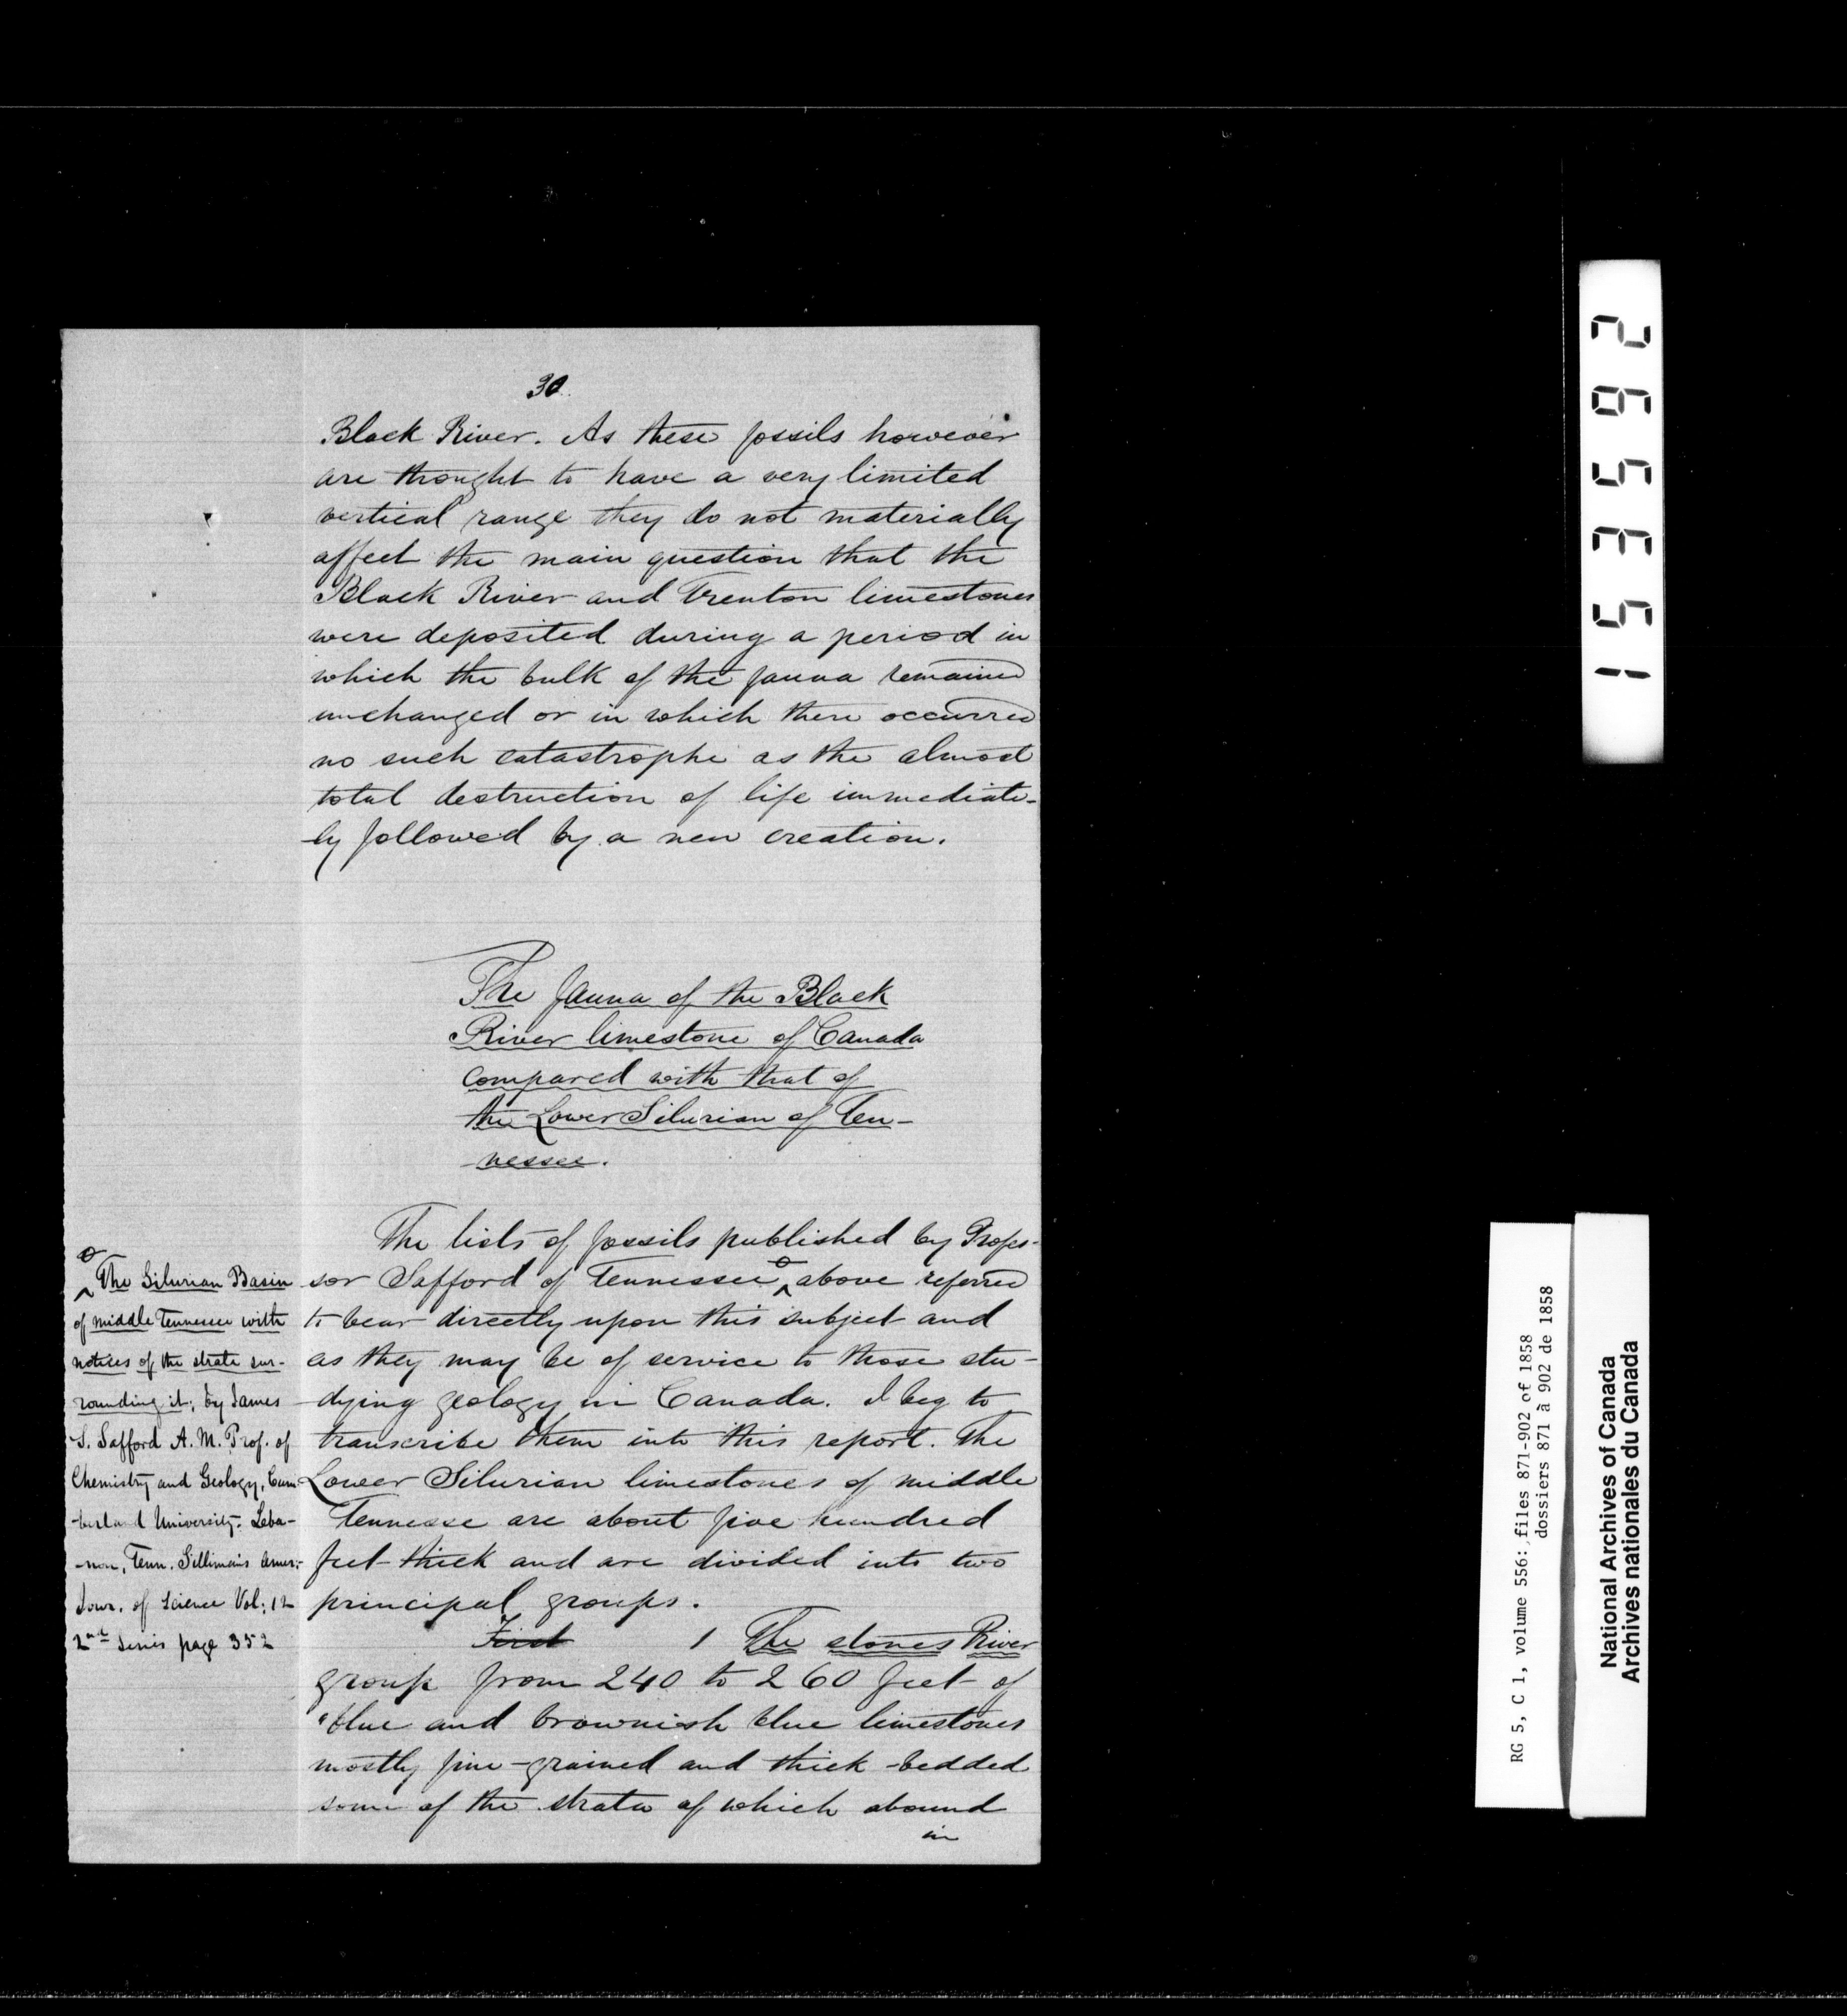 30
Black River. As these fossils however
are thought to have a very limited
vertical range they do not materially
affect the main question that the
Black River and Trenton limestones
were deposited during a period in
which the bulk of the fauna remained
unchanged or in which there occurred
no such catastrophe as the almost
total destruction of life immediate-
ly followed by a new creation.
The fauna of the Black
River limestone of Canada
compared with that of
the Lower Silurian of Ten-
nessee.
The lists of fossils published by Profes-
sor Safford of Tennessee above referred
to bear directly upon this subject and
as they may be of service to those stu-
dying geology in Canada. I beg to
transcribe them into this report. The
Lower Silurian limestones of middle
Tennesse are about five hundred
feet thick and are divided into two
principal groups.
First 1 The stones River
group from 240 to 260 feet of
"blue and brownish blue limestones
mostly fine-grained and thick-bedded
some of the strata of which abound
in
The Silurian Basin
of middle Tennessee with
notices of the strata sur-
rounding it; by James
S. Safford A. M. Prof. of
Chemistry and Geology, Cum
berland University. Leba-
-non, Tenn. Silliman's Amer:
Jour. of Science Vol: 12
2nd series page 352
153592
RG 5, C 1, volume 556: files 871-902 of 1858
dossiers 871 à 902 de 1858
National Archives of Canada
Archives nationales du Canada